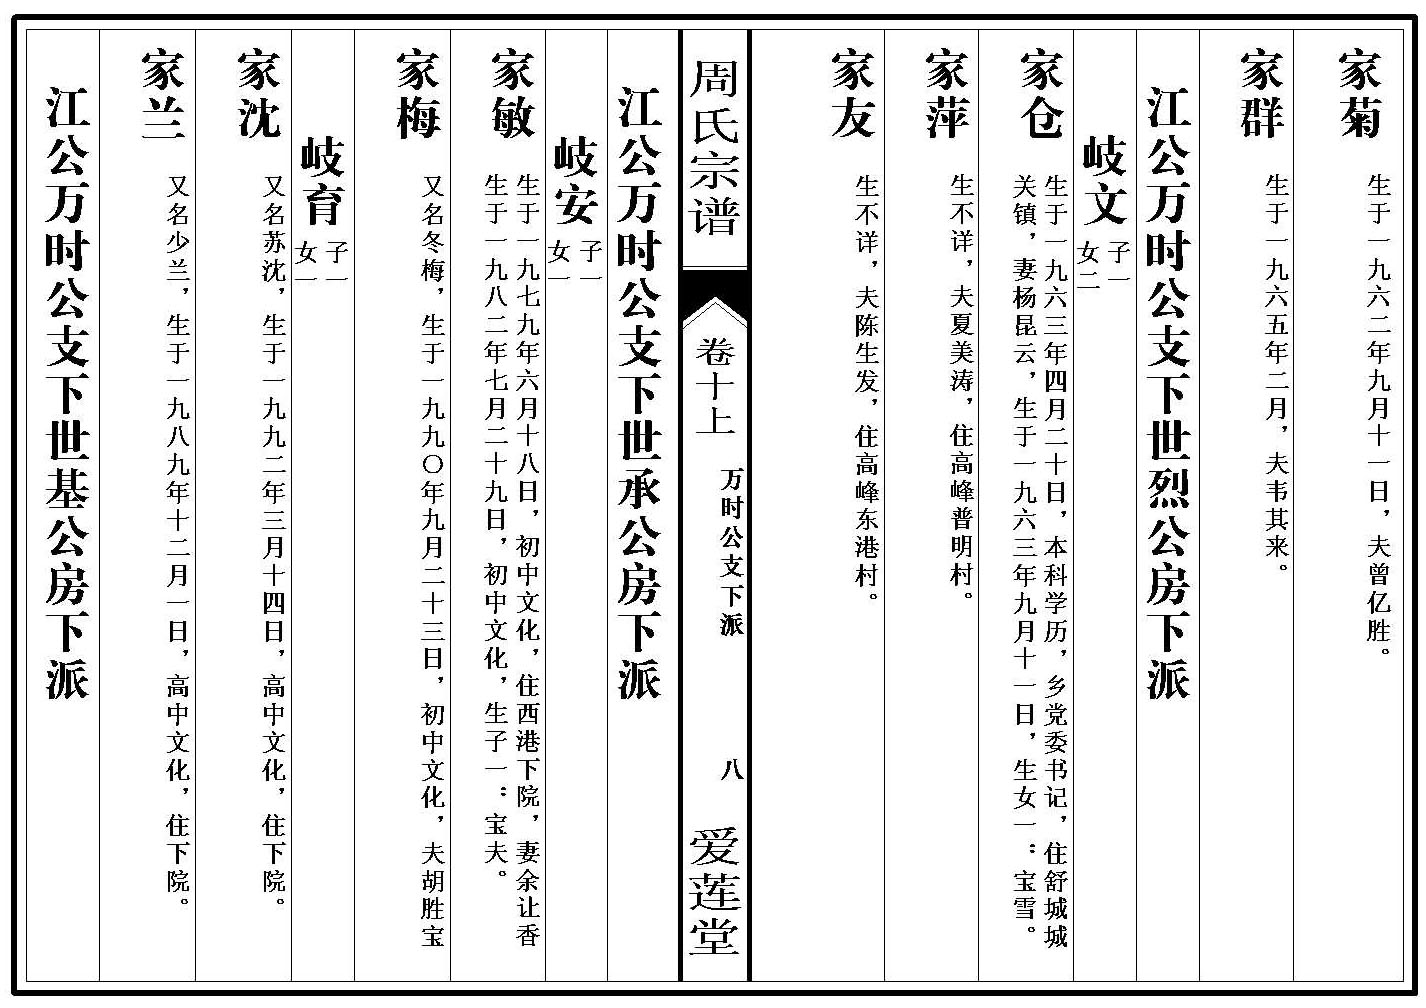 家菊
生于一九六二年九月十一日，夫曾亿胜。
家群
生于一九六五年二月，夫韦其来。
江公万时公支下世烈公房下派
岐文
子一
女二
家仓
生于一九六三年四月二十日，本科学历，乡党委书记，住舒城城
关镇，妻杨昆云，生于一九六三年九月十一日，生女一：宝雪。
家萍
生不详，夫夏美涛，住高峰普明村。
家友
生不详，夫陈生发，住高峰东港村。
周氏宗谱
卷十上
万时公支下派
八
爱莲堂
江公万时公支下世承公房下派
岐安
子一
女一
家敏
生于一九七九年六月十八日，初中文化，住西港下院，妻余让香
生于一九八二年七月二十九日，初中文化，生子一：宝夫。
家梅
又名冬梅，生于一九九〇年九月二十三日，初中文化，夫胡胜宝
岐育
子一
女一
家沈
又名苏沈，生于一九九二年三月十四日，高中文化，住下院。
家兰
又名少兰，生于一九八九年十二月一日，高中文化，住下院。
江公万时公支下世基公房下派